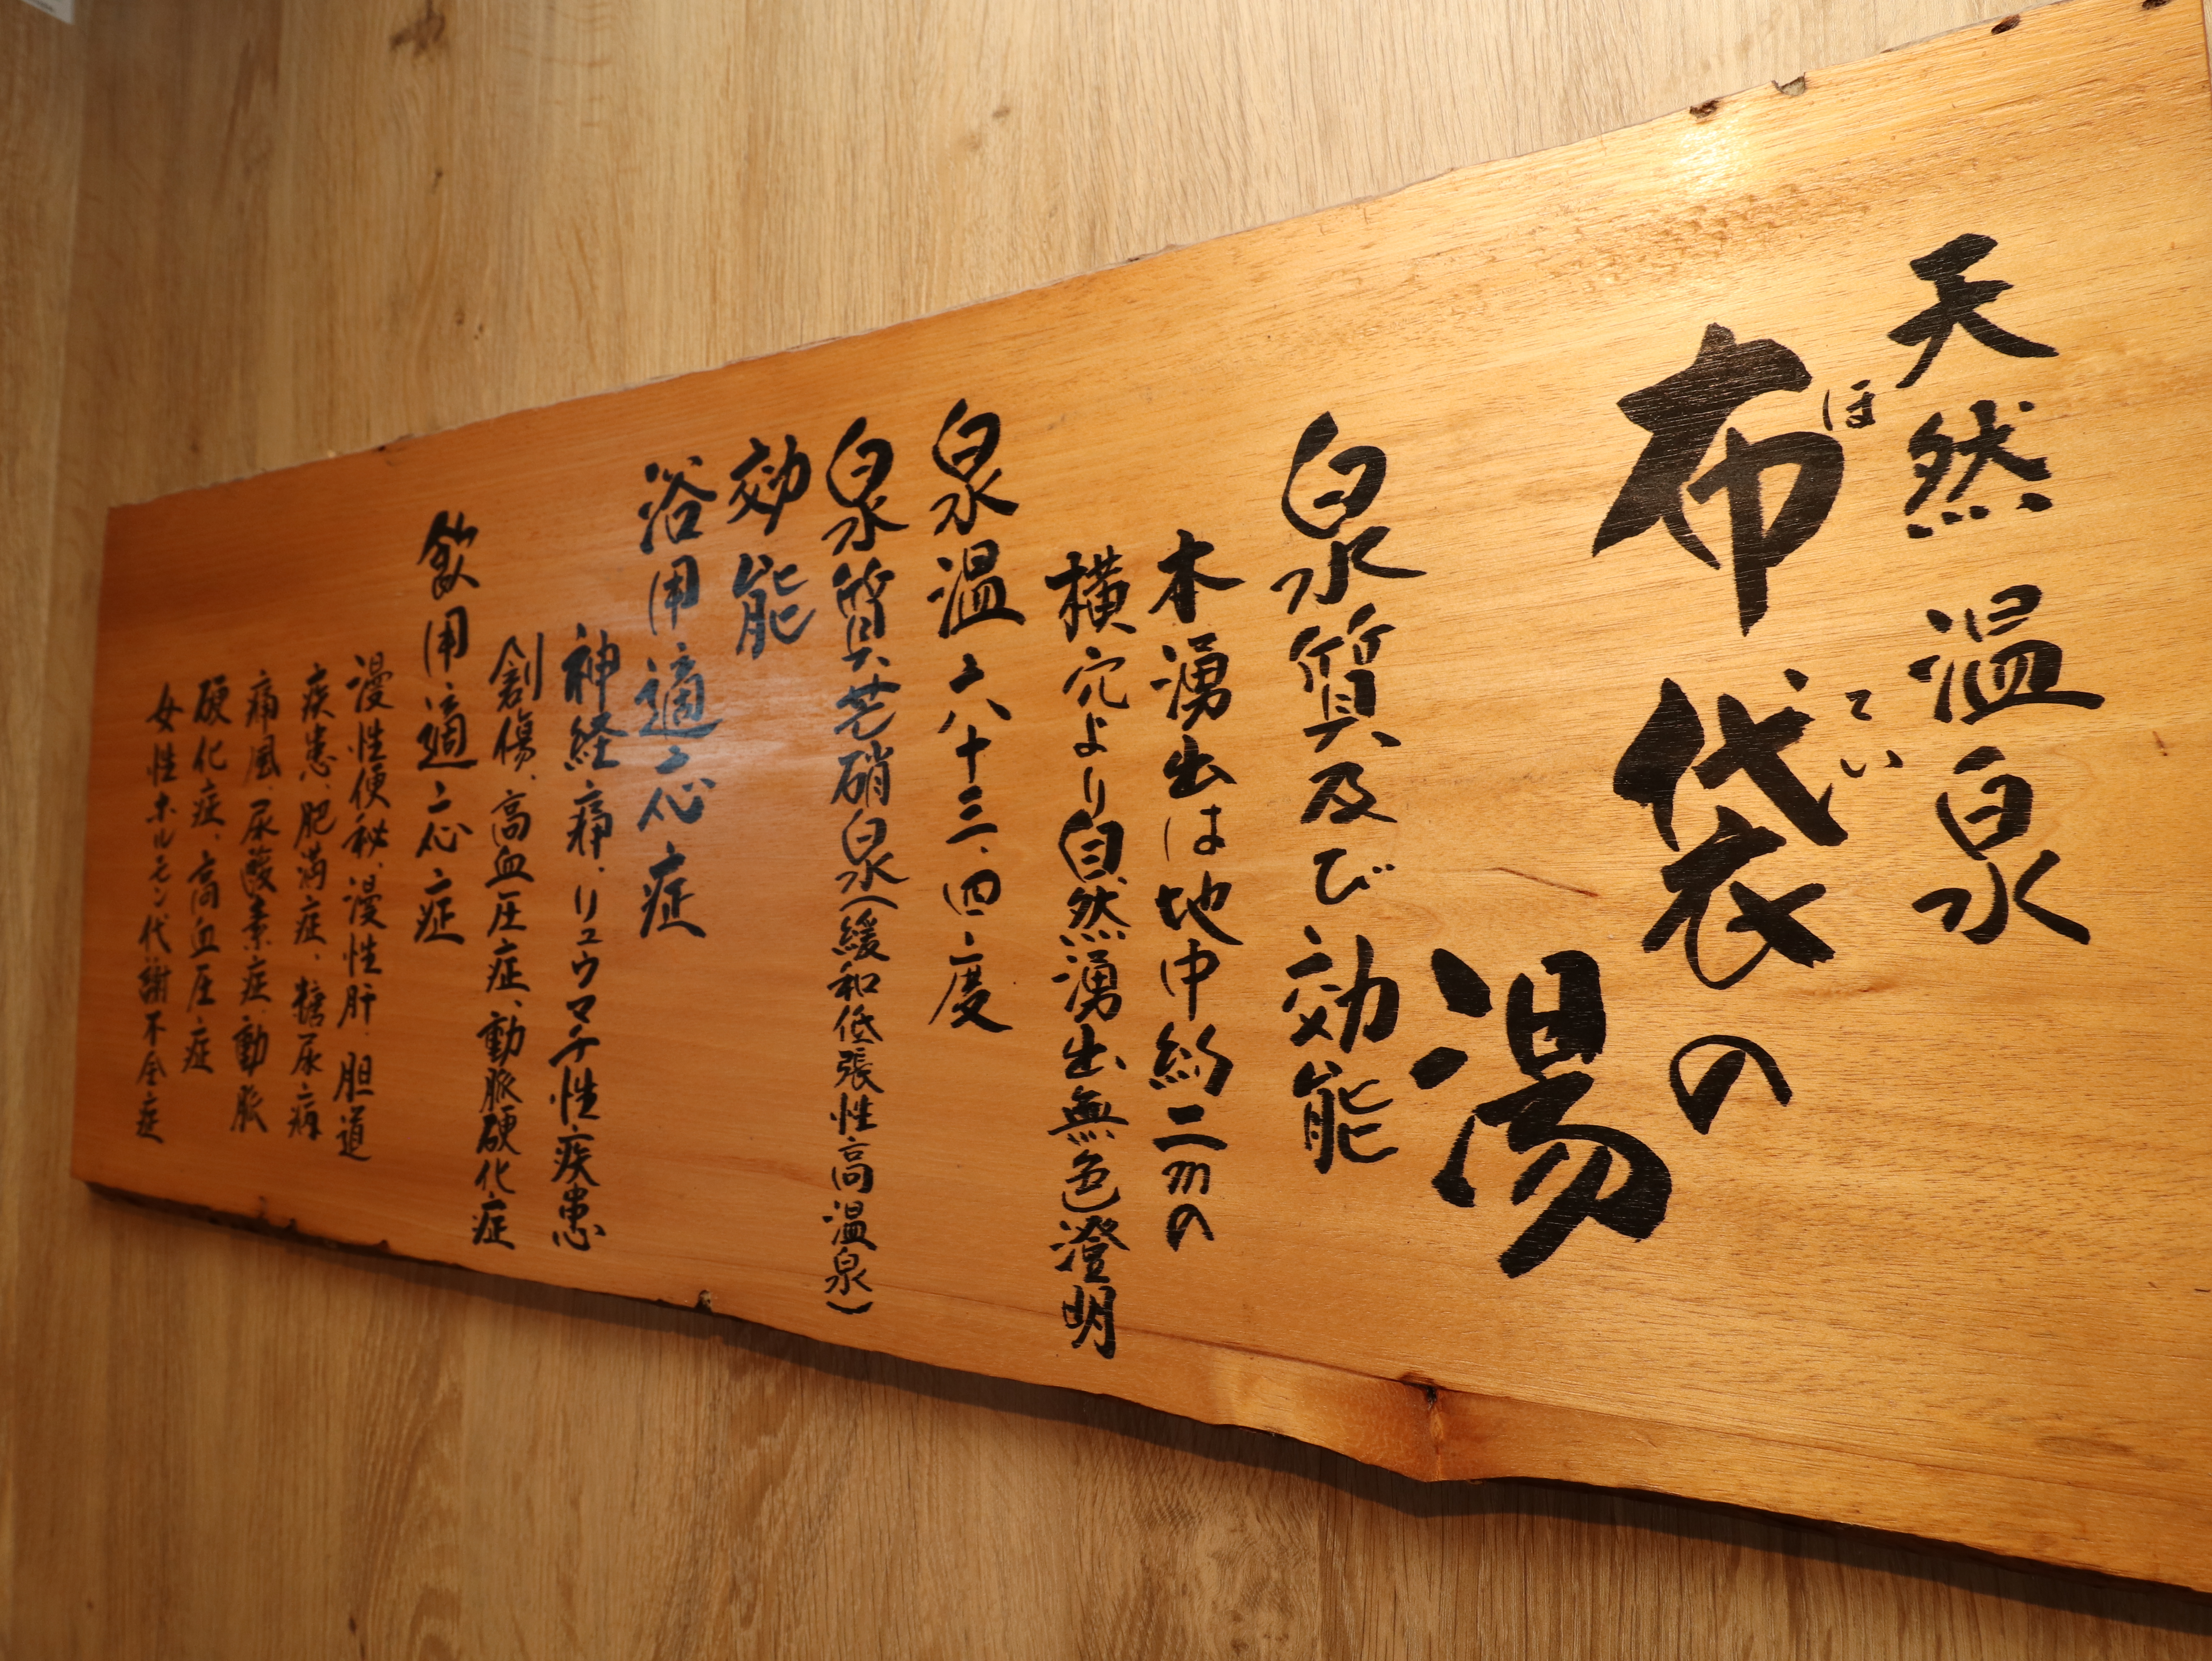 天然温泉
布袋の
ほてい
湯
泉質及び効能
本湧出は地中約二mの
横穴より自然湧出無色澄明
泉温 六十三、四度
泉質 芒硝泉(緩和低張性高温泉)
効能
浴用適応症
神経痛、リュウマチ性疾患
創傷、高血圧症、動脈硬化症
飲用適応症
漫性便秘、漫性肝、胆道
疾患、肥満症、糖尿病
痛風、尿酸素症、動脈
硬化症、高血圧症
女性ホルモン代謝不全症